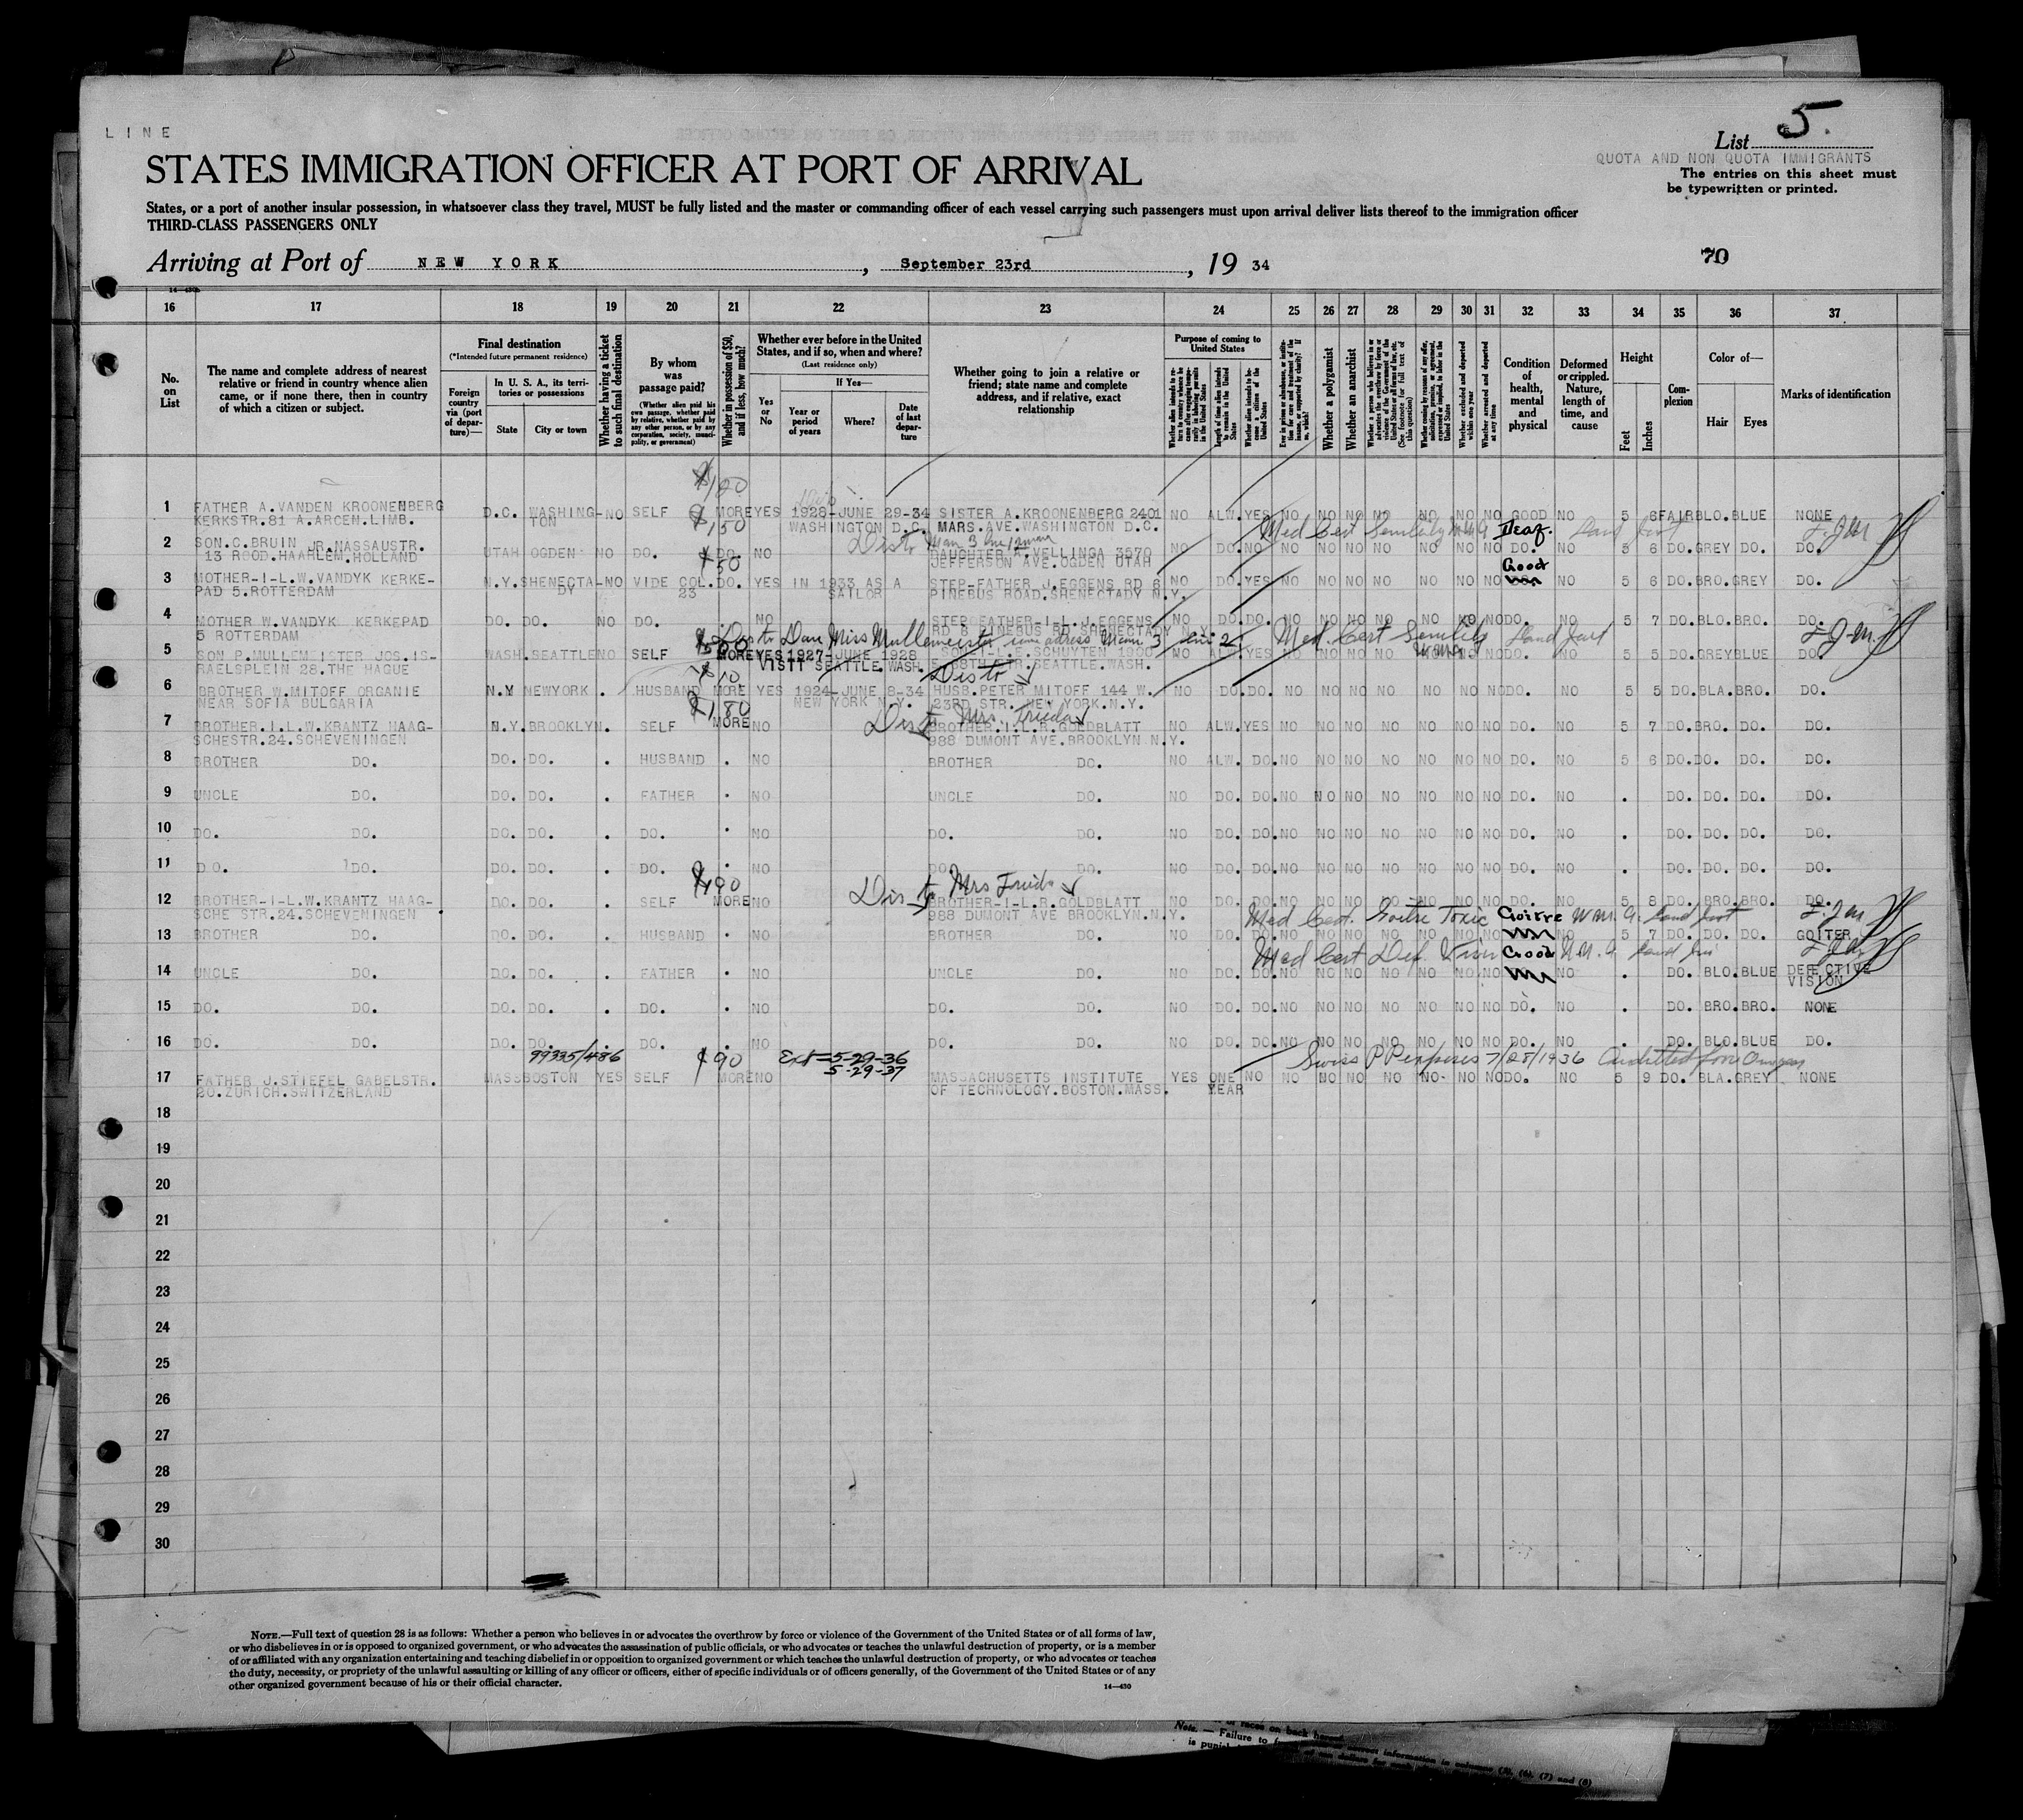 LINE
List 5.
QUOTA AND NON QUOTA IMMIGRANTS
STATES IMMIGRATION OFFICER AT PORT OF ARRIVAL
The entries on this sheet must
be typewritten or printed.
States, or a port of another insular possession, in whatsoever class they travel, MUST be fully listed and the master or commanding officer of each vessel carrying such passengers must upon arrival deliver lists thereof to the immigration officer
THIRD-CLASS PASSENGERS ONLY
Arriving at Port of NEW YORK, September 23rd, 19 34
70
16 17 18 19 20 21 22 23 24 25 26 27 28 29 30 31 32 33 34 35 36 37
No. on List
The name and complete address of nearest
relative or friend in country whence alien
came, or if none there, then in country
of which a citizen or subject.
Final destination
(*Intended future permanent residence)
Foreign country via (port of departure)—
In U. S. A., its territories or possessions
State
City or town
Whether having a ticket to such final destination
By whom was passage paid?
(Whether alien paid his own passage, whether paid by relative, whether paid by any other person, or by any corporation, society, municipality, or government)
Whether in possession of $50, and if less, how much?
Whether ever before in the United
States, and if so, when and where?
(Last residence only)
Yes or No
If Yes—
Year or period of years
Where?
Date of last departure
Whether going to join a relative or
friend; state name and complete
address, and if relative, exact
relationship
Purpose of coming to United States
Whether a polygamist
Whether an anarchist
Whether excluded and deported within one year
Whether arrested and deported at any time
Condition of health, mental and physical
Deformed or crippled. Nature, length of time, and cause
Height
Feet
Inches
Complexion
Color of—
Hair
Eyes
Marks of identification
$120
1 FATHER A.VANDEN KROONENBERG D.C. WASHING- NO SELF MORE YES 1928-JUNE 29-34 SISTER A.KROONENBERG 2401 NO ALW. YES NO NO NO NO NO NO NO GOOD NO 5 6 FAIR BLO. BLUE NONE
KERKSTR.81 A.ARCEN.LIMB. TON WASHINGTON D.C. MARS.AVE.WASHINGTON D.C.
$150 Med Cert Senility Deaf.
2 SON.C.BRUIN JR.NASSAUSTR. UTAH OGDEN NO DO. DO. NO DAUGHTER A.VELLINGA 3570 NO DO. NO NO NO NO NO NO NO NO DO. NO 5 6 DO. GREY DO. DO.
13 ROOD.HAARLEM.HOLLAND JEFFERSON AVE.OGDEN UTAH
$50 Good
3 MOTHER-I-L.W.VANDYK KERKE- N.Y. SHENECTA- NO VIDE COL. DO. YES IN 1933 AS A STEP-FATHER J.EGGENS RD 6 NO DO. YES NO NO NO NO NO NO NO NO 5 6 DO. BRO. GREY DO.
PAD 5.ROTTERDAM DY 23 SAILOR PINEBUS ROAD.SHENECTADY N.Y.
4 MOTHER W.VANDYK KERKEPAD DO. DO. NO DO. . NO STEP FATHER-I-L J.EGGENS NO DO. DO. NO NO NO NO NO NO NO DO. NO 5 7 DO. BLO. BRO. DO.
5 ROTTERDAM RD 6 PINEBUS RD SHENECTADY N.Y.
Med. Cert Senility
5 SON P.MULLEMEISTER JOS.IS- WASH. SEATTLE NO SELF MORE YES 1927-JUNE 1928 SON-I-L.E.SCHUYTEN 1900 NO ALW. YES NO NO NO NO NO NO NO DO. NO 5 5 DO. GREY BLUE DO.
RAELSPLEIN 28.THE HAGUE VISIT SEATTLE WASH. SEATTLE.WASH.
$10
6 BROTHER W.MITOFF ORGANIE N.Y NEWYORK . HUSBAND MORE YES 1924-JUNE 8-34 HUSB.PETER MITOFF 144 W. NO DO. DO. NO NO NO NO NO NO NO DO. NO 5 5 DO. BLA. BRO. DO.
NEAR SOFIA BULGARIA NEW YORK N.Y. 23RD STR. NEW YORK.N.Y.
$180 Mrs. Frieda
7 BROTHER.I.L.W.KRANTZ HAAG- N.Y. BROOKLYN. SELF MORE NO BROTHER.I.L.R.GOLDBLATT NO ALW. YES NO NO NO NO NO NO NO DO. NO 5 7 DO. BRO. DO. DO.
SCHESTR.24.SCHEVENINGEN 988 DUMONT AVE.BROOKLYN N.Y.
8 BROTHER DO. DO. DO. . HUSBAND . NO BROTHER DO. NO ALW. DO. NO NO NO NO NO NO NO DO. NO 5 6 DO. DO. DO. DO.
9 UNCLE DO. DO. DO. . FATHER . NO UNCLE DO. NO DO. DO. NO NO NO NO NO NO NO DO. NO . DO. DO. DO. DO.
10 DO. DO. DO. DO. . DO. . NO DO. DO. NO DO. DO. NO NO NO NO NO NO NO DO. NO . DO. DO. DO. DO.
11 DO. DO. DO. DO. . DO. . NO DO. DO. NO DO. DO. NO NO NO NO NO NO NO DO. NO . DO. DO. DO. DO.
$190
12 BROTHER-I-L.W.KRANTZ HAAG- DO. DO. . SELF MORE NO BROTHER-I-L.R.GOLDBLATT NO DO. DO. NO NO NO NO NO NO NO DO. NO 5 8 DO. BRO. BRO. DO.
SCHE STR.24.SCHEVENINGEN 988 DUMONT AVE BROOKLYN.N.Y.
Med Cert. Goitre Toxic Goitre
13 BROTHER DO. DO. DO. . HUSBAND . NO BROTHER DO. NO DO. DO. NO NO NO NO NO NO NO NO 5 7 DO. DO. DO. GOITER
Med Cert Def. Vision Good
14 UNCLE DO. DO. DO. . FATHER . NO UNCLE DO. NO DO. DO. NO NO NO NO NO NO NO NO . DO. BLO. BLUE DEFECTIVE
VISION
15 DO. DO. DO. DO. . DO. . NO DO. DO. NO DO. DO. NO NO NO NO NO NO NO DO. NO . DO. BRO. BRO. NONE
16 DO. DO. DO. DO. . DO. . NO DO. DO. NO DO. DO. NO NO NO NO NO NO NO DO. NO . DO. BLO. BLUE DO.
99335/486 $90 Ext=5-29-36 Swiss 7/28/1936
5-29-37
17 FATHER J.STIEFEL GABELSTR. MASS BOSTON YES SELF MORE NO MASSACHUSETTS INSTITUTE YES ONE NO NO NO NO NO NO NO NO DO. NO 5 9 DO. BLA. GREY NONE
20.ZURICH.SWITZERLAND OF TECHNOLOGY.BOSTON.MASS. YEAR
18
19
20
21
22
23
24
25
26
27
28
29
30
NOTE.—Full text of question 28 is as follows: Whether a person who believes in or advocates the overthrow by force or violence of the Government of the United States or of all forms of law,
or who disbelieves in or is opposed to organized government, or who advocates the assassination of public officials, or who advocates or teaches the unlawful destruction of property, or is a member
of or affiliated with any organization entertaining and teaching disbelief in or opposition to organized government or which teaches the unlawful destruction of property, or who advocates or teaches
the duty, necessity, or propriety of the unlawful assaulting or killing of any officer or officers, either of specific individuals or of officers generally, of the Government of the United States or of any
other organized government because of his or their official character.
14—430